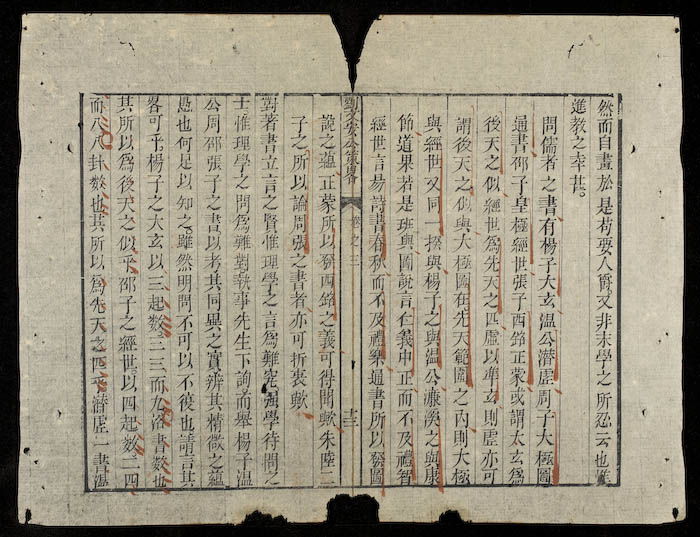 然而自畫於是苟要人爵又非末學之所忍云也惟
進教之幸甚。
問儒者之書有楊子大玄溫公潛虛周子大極圖
通書邵子皇極經世張子西銘正蒙或謂太玄爲
後天之似經世爲先天之匹虛以準玄則虛亦可
謂後天之似與大極圖在先天範圍之內則大極
與經世又同一揆與楊子之與溫公濂溪之與康
節道果若是班與圖說言仁義中正而不及禮智
經世言易詩書春秋而不及禮樂通書所以發圖
劉文安公策畧 卷之三 十三
說之蘊正蒙所以發西銘之義可得聞歟朱陸二
子之所以論周張之書者亦可折衷歟
對著書立言之賢惟理學之言爲難究強學待問之
士惟理學之問爲難對執事先生下詢而舉楊子溫
公周邵張子之書以考其同異之實辨其精微之蘊
愚也何足以知之雖然明問不可以不復也請言其
畧可乎楊子之大玄以三起數三三而九洛書數也
其所以爲後天之似乎邵子之經世以四起數二四
而八八卦數也其所以爲先天之匹乎潛虛一書溫